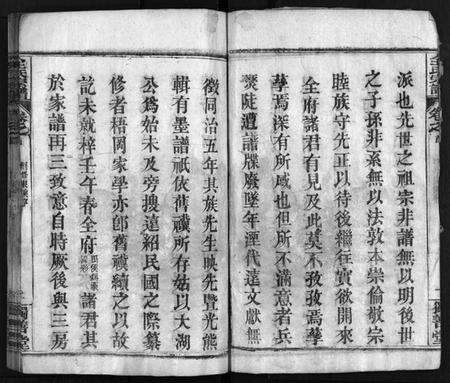 派也先世之祖宗非譜無以明後世
之子孫非系無以法敦本崇倫敬宗
睦族守先正以待後繼往實欲開來
全府諸君有見及此莫不孜孜焉孳
孳焉深有所感也但所不滿意者兵
燹陡遭譜牒廢墜年湮代遠文獻無
徵同治五年其族先生映先暨光熊
輯有墨譜祇依舊牘所存姑以大湖
公為始未及旁搜遠紹民國之際纂
修者梧岡家學亦卽舊牘續之以故
記未就梓壬午春全府諸君其
於家譜再三致意自時厥後與三房